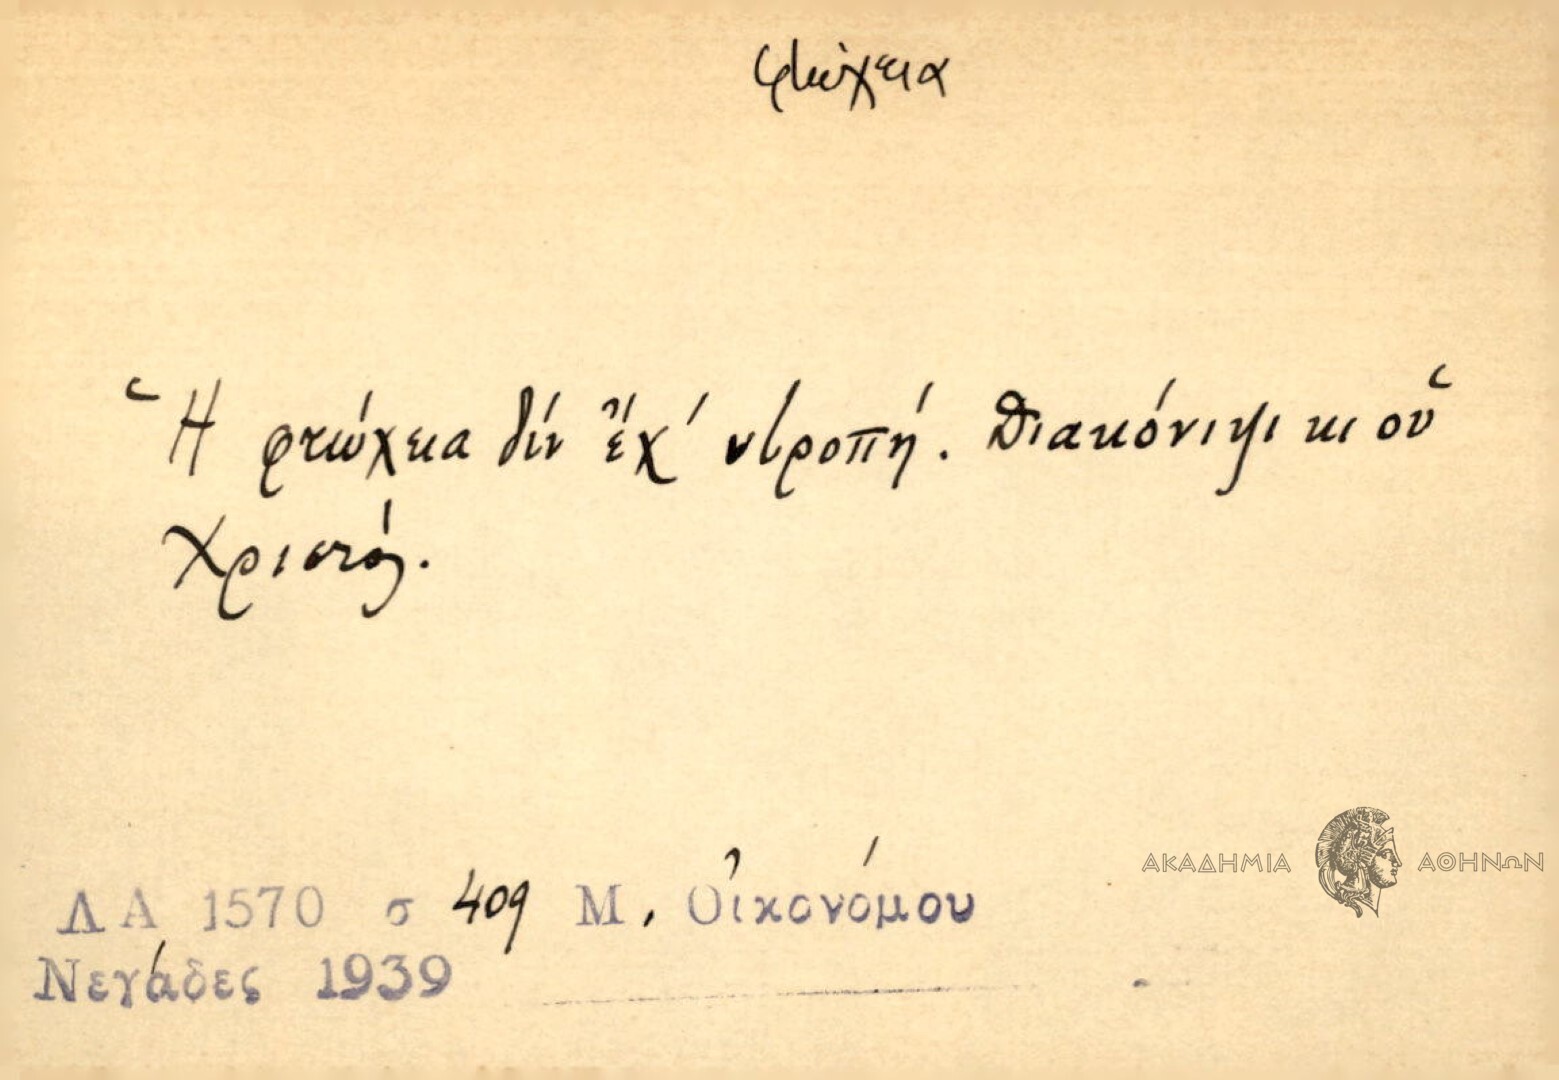 φτώχεια
Ἡ φτώχεια δὶν ἔχ' ντροπή. Διακόνιψι κι οὑ
Χριστός.
ΛΑ 1570 σ 409 Μ. Οἰκονόμου
Νεγάδες 1939
ΑΚΑΔΗΜΙΑ ΑΘΗΝΩΝ